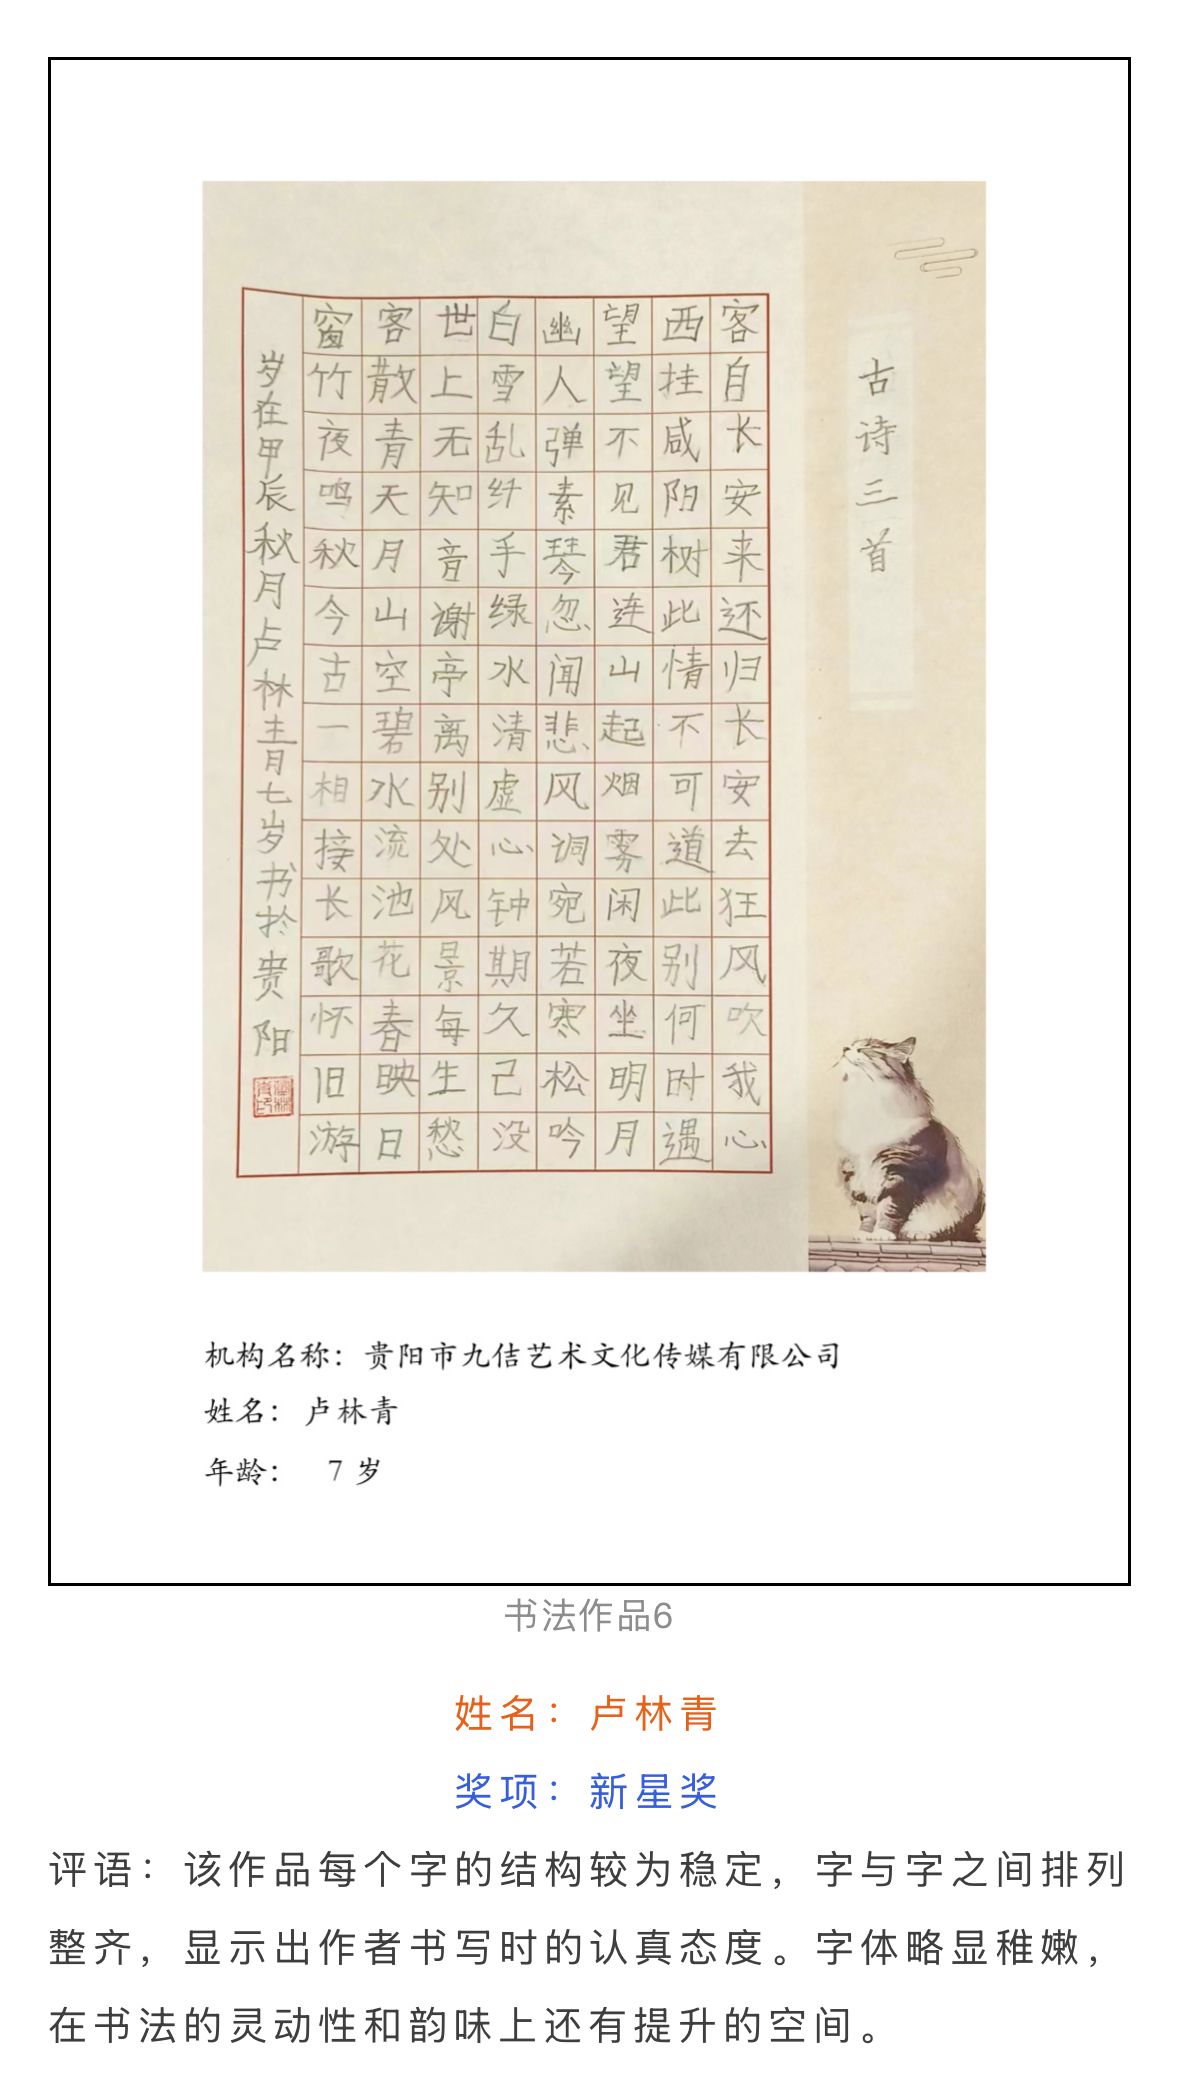 古诗三首
客自长安来还归长安去狂风吹我心
西挂咸阳树此情不可道此别何时遇
望望不见君连山起烟雾闲夜坐明月
幽人弹素琴忽闻悲风调宛若寒松吟
白雪乱纤手绿水清虚心钟期久己没
世上无知音谢亭离别处风景每生愁
客散青天月山空碧水流池花春映日
窗竹夜鸣秋今古一相接长歌怀旧游
岁在甲辰秋月卢林青七岁书於贵阳
机构名称：贵阳市九佶艺术文化传媒有限公司
姓名：卢林青
年龄：7 岁
书法作品6
姓名：卢林青
奖项：新星奖
评语：该作品每个字的结构较为稳定，字与字之间排列
整齐，显示出作者书写时的认真态度。字体略显稚嫩，
在书法的灵动性和韵味上还有提升的空间。